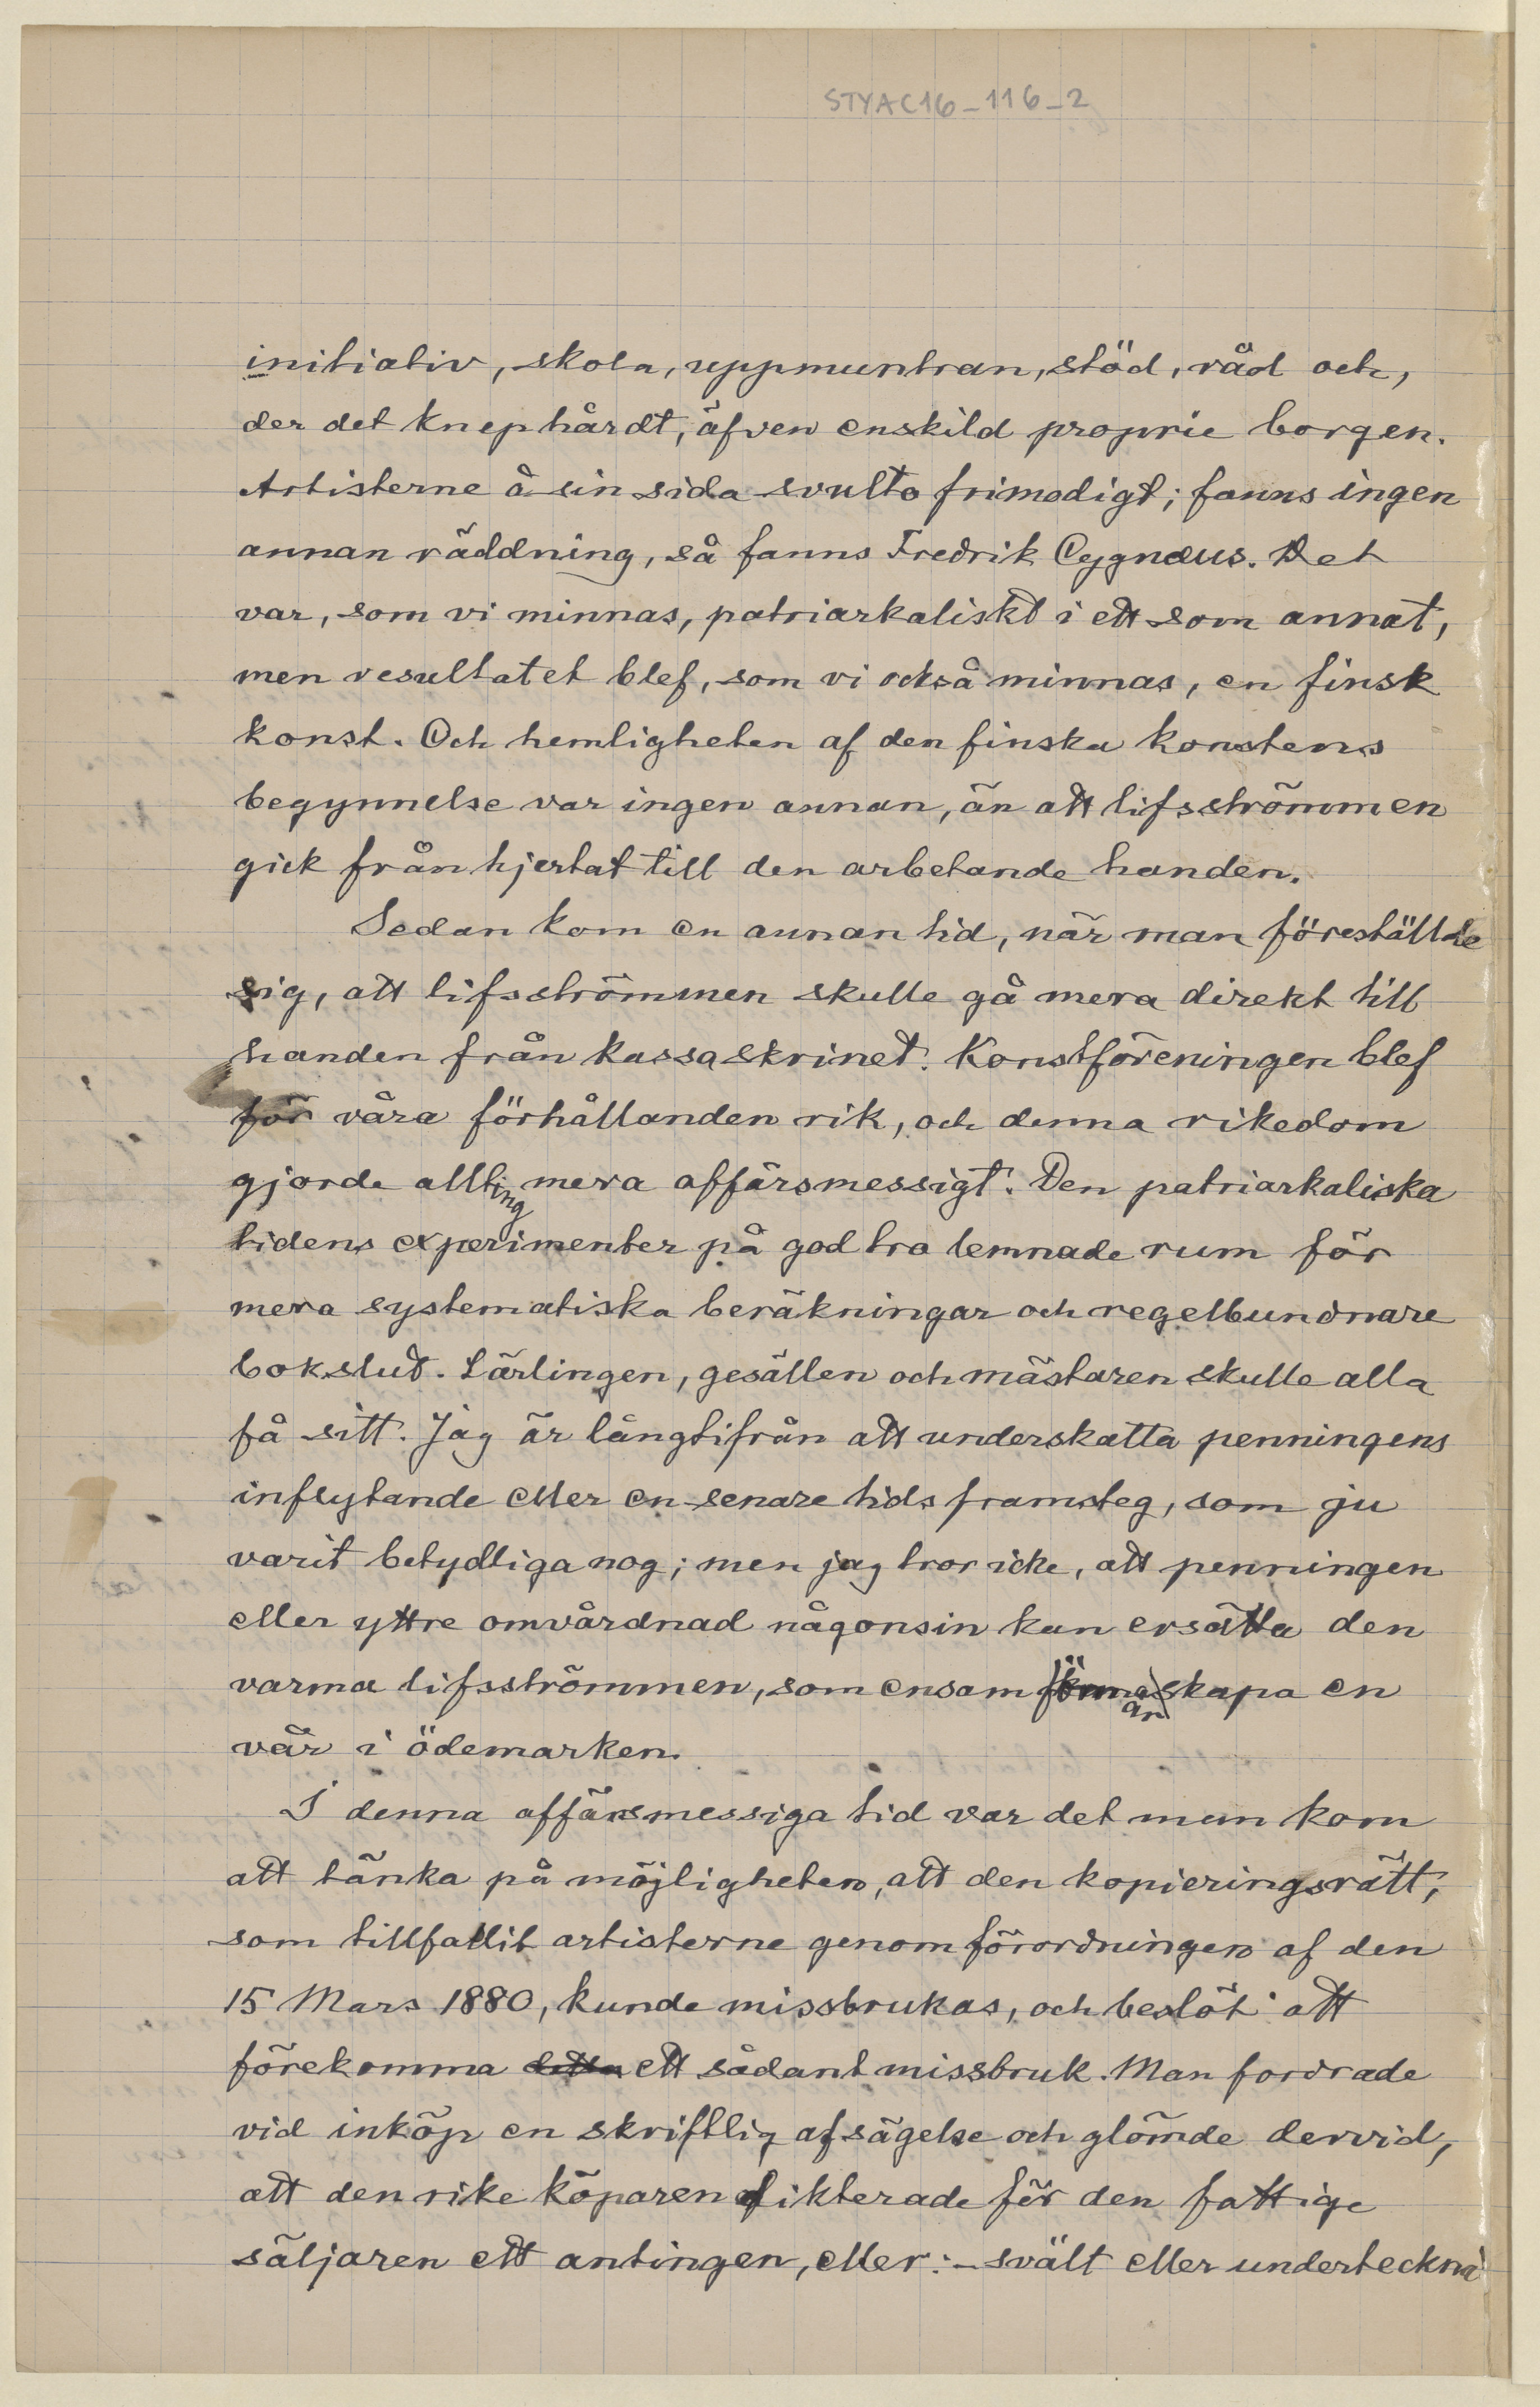 STYAC16-116-2
initiativ, skola, uppmuntran, stöd, råd och,
der det knep hårdt, äfven enskild proprie borgen.
Artisterne å sin sida svulto frimodigt; fanns ingen
annan räddning, så fanns Fredrik Cygnæus. Det
var, som vi minnas, patriarkaliskt i ett som annat,
men resultatet blef, som vi också minnas, en finsk
konst. Och hemligheten af den finska konstens
begynnelse var ingen annan, än att lifsströmmen
gick från hjertat till den arbetande handen.
Sedan kom en annan tid, när man föreställde
sig, att lifsströmmen skulle gå mera direkt till
handen från kassaskrinet. Konstföreningen blef
för våra förhållanden rik, och denna rikedom
gjorde allting mera affärsmessigt. Den patriarkaliska
tidens experimenter på god tro lemnade rum för
mera systematiska beräkningar och regelbundnare
bokslut. Lärlingen, gesällen och mästaren skulle alla
få sitt. Jag är långtifrån att underskatta penningens
inflytande eller en senare tids framsteg, som ju
varit betydliga nog; men jag tror icke, att penningen
eller yttre omvårdnad någonsin kan ersätta den
varma lifsströmmen, som ensam kan skapa en
vår i ödemarken.
I denna affärsmessiga tid var det man kom
att tänka på möjligheten, att den kopieringsrätt,
som tillfallit artisterne genom förordningen af den
15 Mars 1880, kunde missbrukas, och beslöt att
förekomma detta ett sådant missbruk. Man fordrade
vid inköp en skriftlig afsägelse och glömde dervid,
att den rike köparen dikterade för den fattige
säljaren ett antingen, eller: – svält eller underteckna